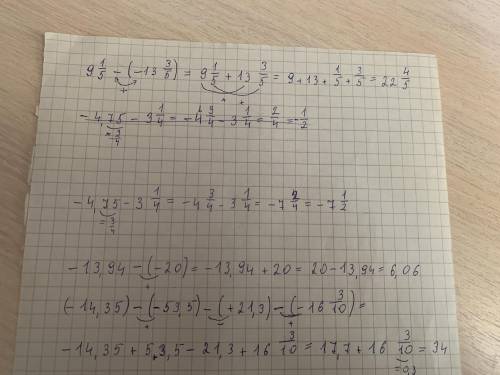 9 1/5 - (-13 3/5) = 9 1/5 + 13 3/5 = 9 + 13 + 1/5 + 3/5 = 22 4/5
+
+ +
- 4,75 - 3 1/4 = - 4 3/4 - 3 1/4 = 2/4 = - 1/2
= 3/4
- 4,75 - 3 1/4 = - 4 3/4 - 3 1/4 = - 7 2/4 = - 7 1/2
= 3/4
- 13,94 - (-20) = - 13,94 + 20 = 20 - 13,94 = 6,06
+
(- 14,35) - (-53,5) - (+21,3) - (-16 3/10) =
+ - +
- 14,35 + 53,5 - 21,3 + 16 3/10 = 17,7 + 16 3/10 = 34
= 0,3